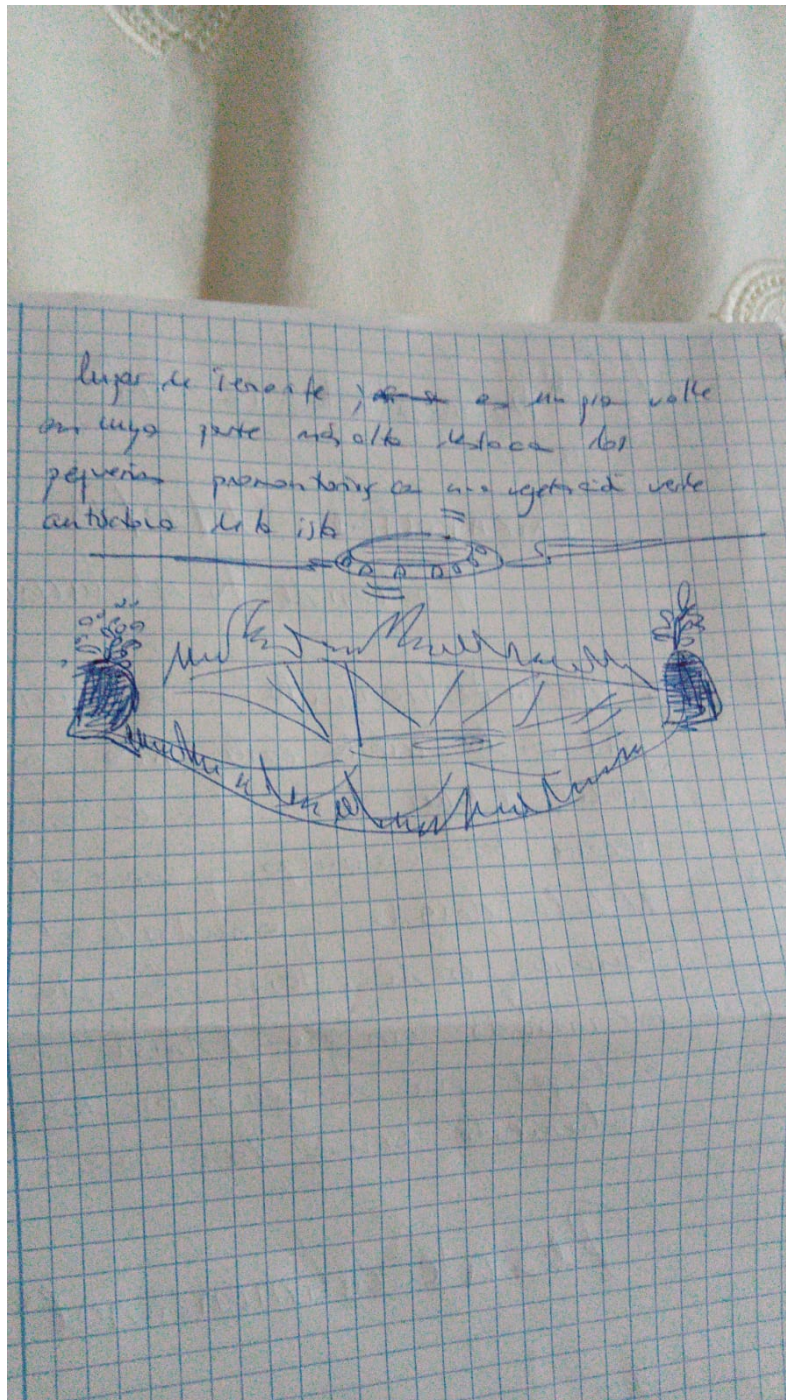 lugar de Tenerife, es un gran valle
en cuya parte más alta destacan dos
pequeños promontorios con una vegetación verde
autóctona de la isla